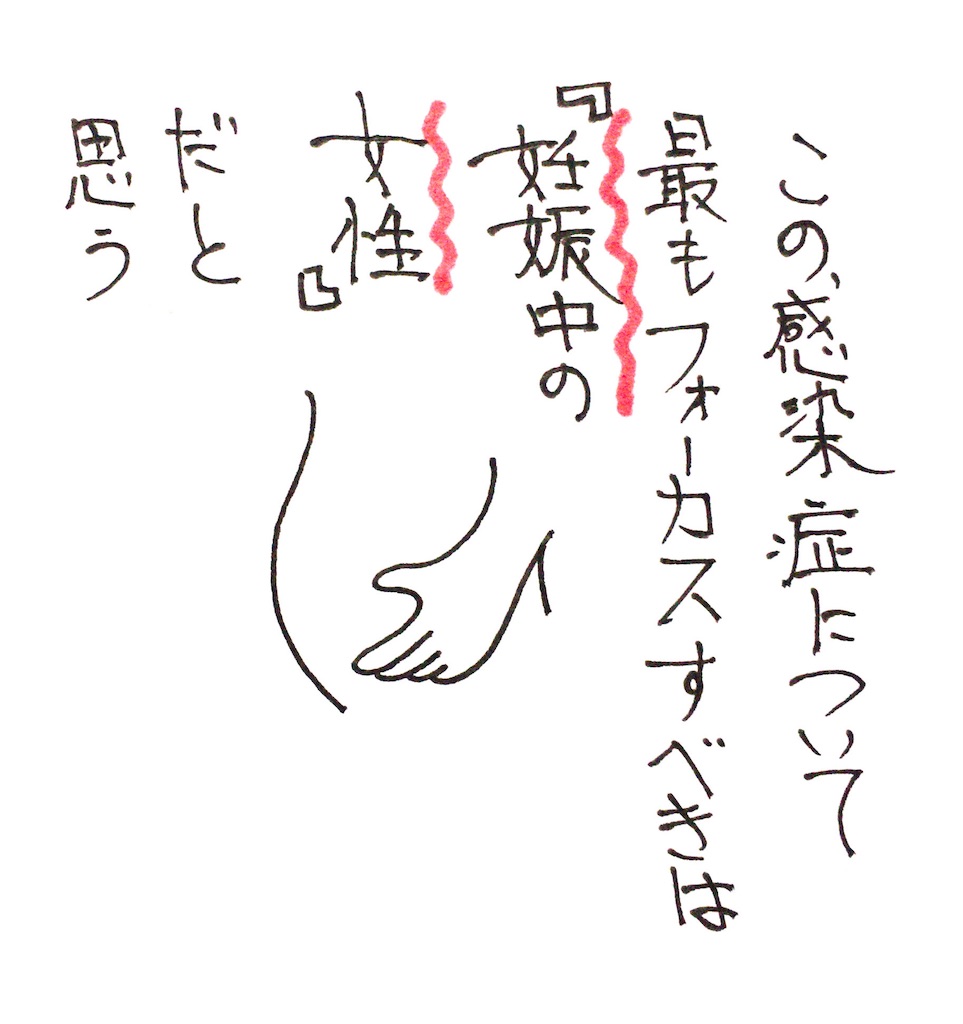 この、感染症について
最もフォーカスすべきは
『妊娠中の
女性』
だと
思う